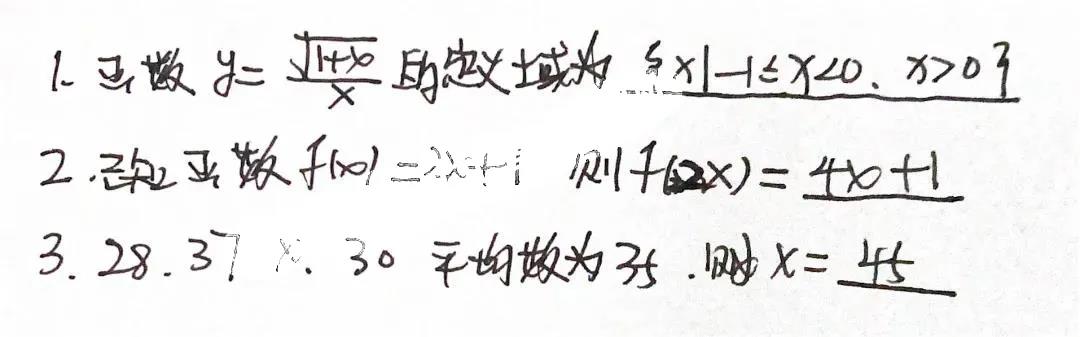 1. 函数 y=√(1+x)/x 的定义域为 {x|-1≤x<0、x>0}
2. 已知函数f(x)=2x+1 则f(2x)=4x+1
3. 28.37 x. 30 平均数为35.则 x=45